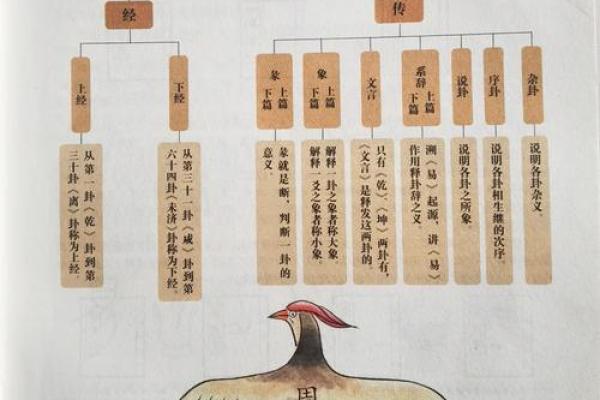 经
传
上经
下经
彖
上篇
下篇
象
上篇
下篇
文言
系辞
上篇
下篇
说卦
序卦
杂卦
从第一卦《乾》卦到第
三十卦《离》卦称为上经。
从第三十一卦《咸》卦到第
六十四卦《未济》卦称为下经。
彖就是断，判断一卦的
意义。
解释一卦之象者称大象。
解释一爻之象者称小象。
只有《乾》、《坤》两卦有，
《文言》是释发这两卦的。
溯《易》起源，讲《易》
作用释卦辞之义
说明各卦之所象。
说明各卦相生继的次序。
说明各卦杂义。
周